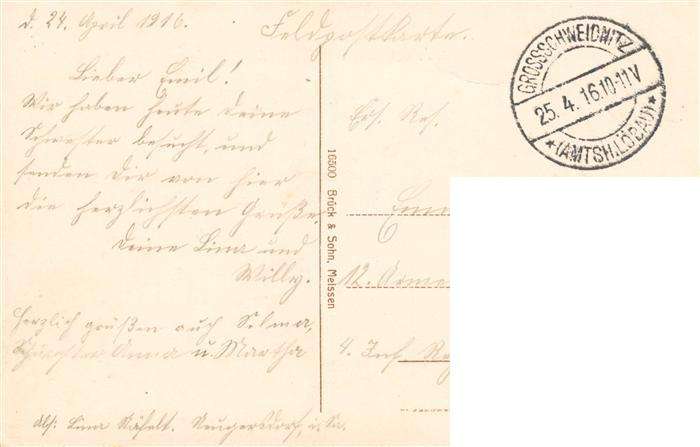 d. 24. April 1916.
Feldpostkarte.
Lieber Emil!
Wir haben heute Deine
Schwester besucht, und
senden Dir von hier
die herzlichsten Grüße.
Deine Lina und
Willy.
Herzlich grüßen auch Selma,
Schwester Anna u. Martha
Abs: Lina Neugersdorf, i. Sa.
16500 Brück & Sohn, Meissen
GROSSSCHWEIDNITZ
25. 4. 16.10-11V
*(AMTSH.LÖBAU)*
Ers. Res.
12. Arme
4. Inf. Reg